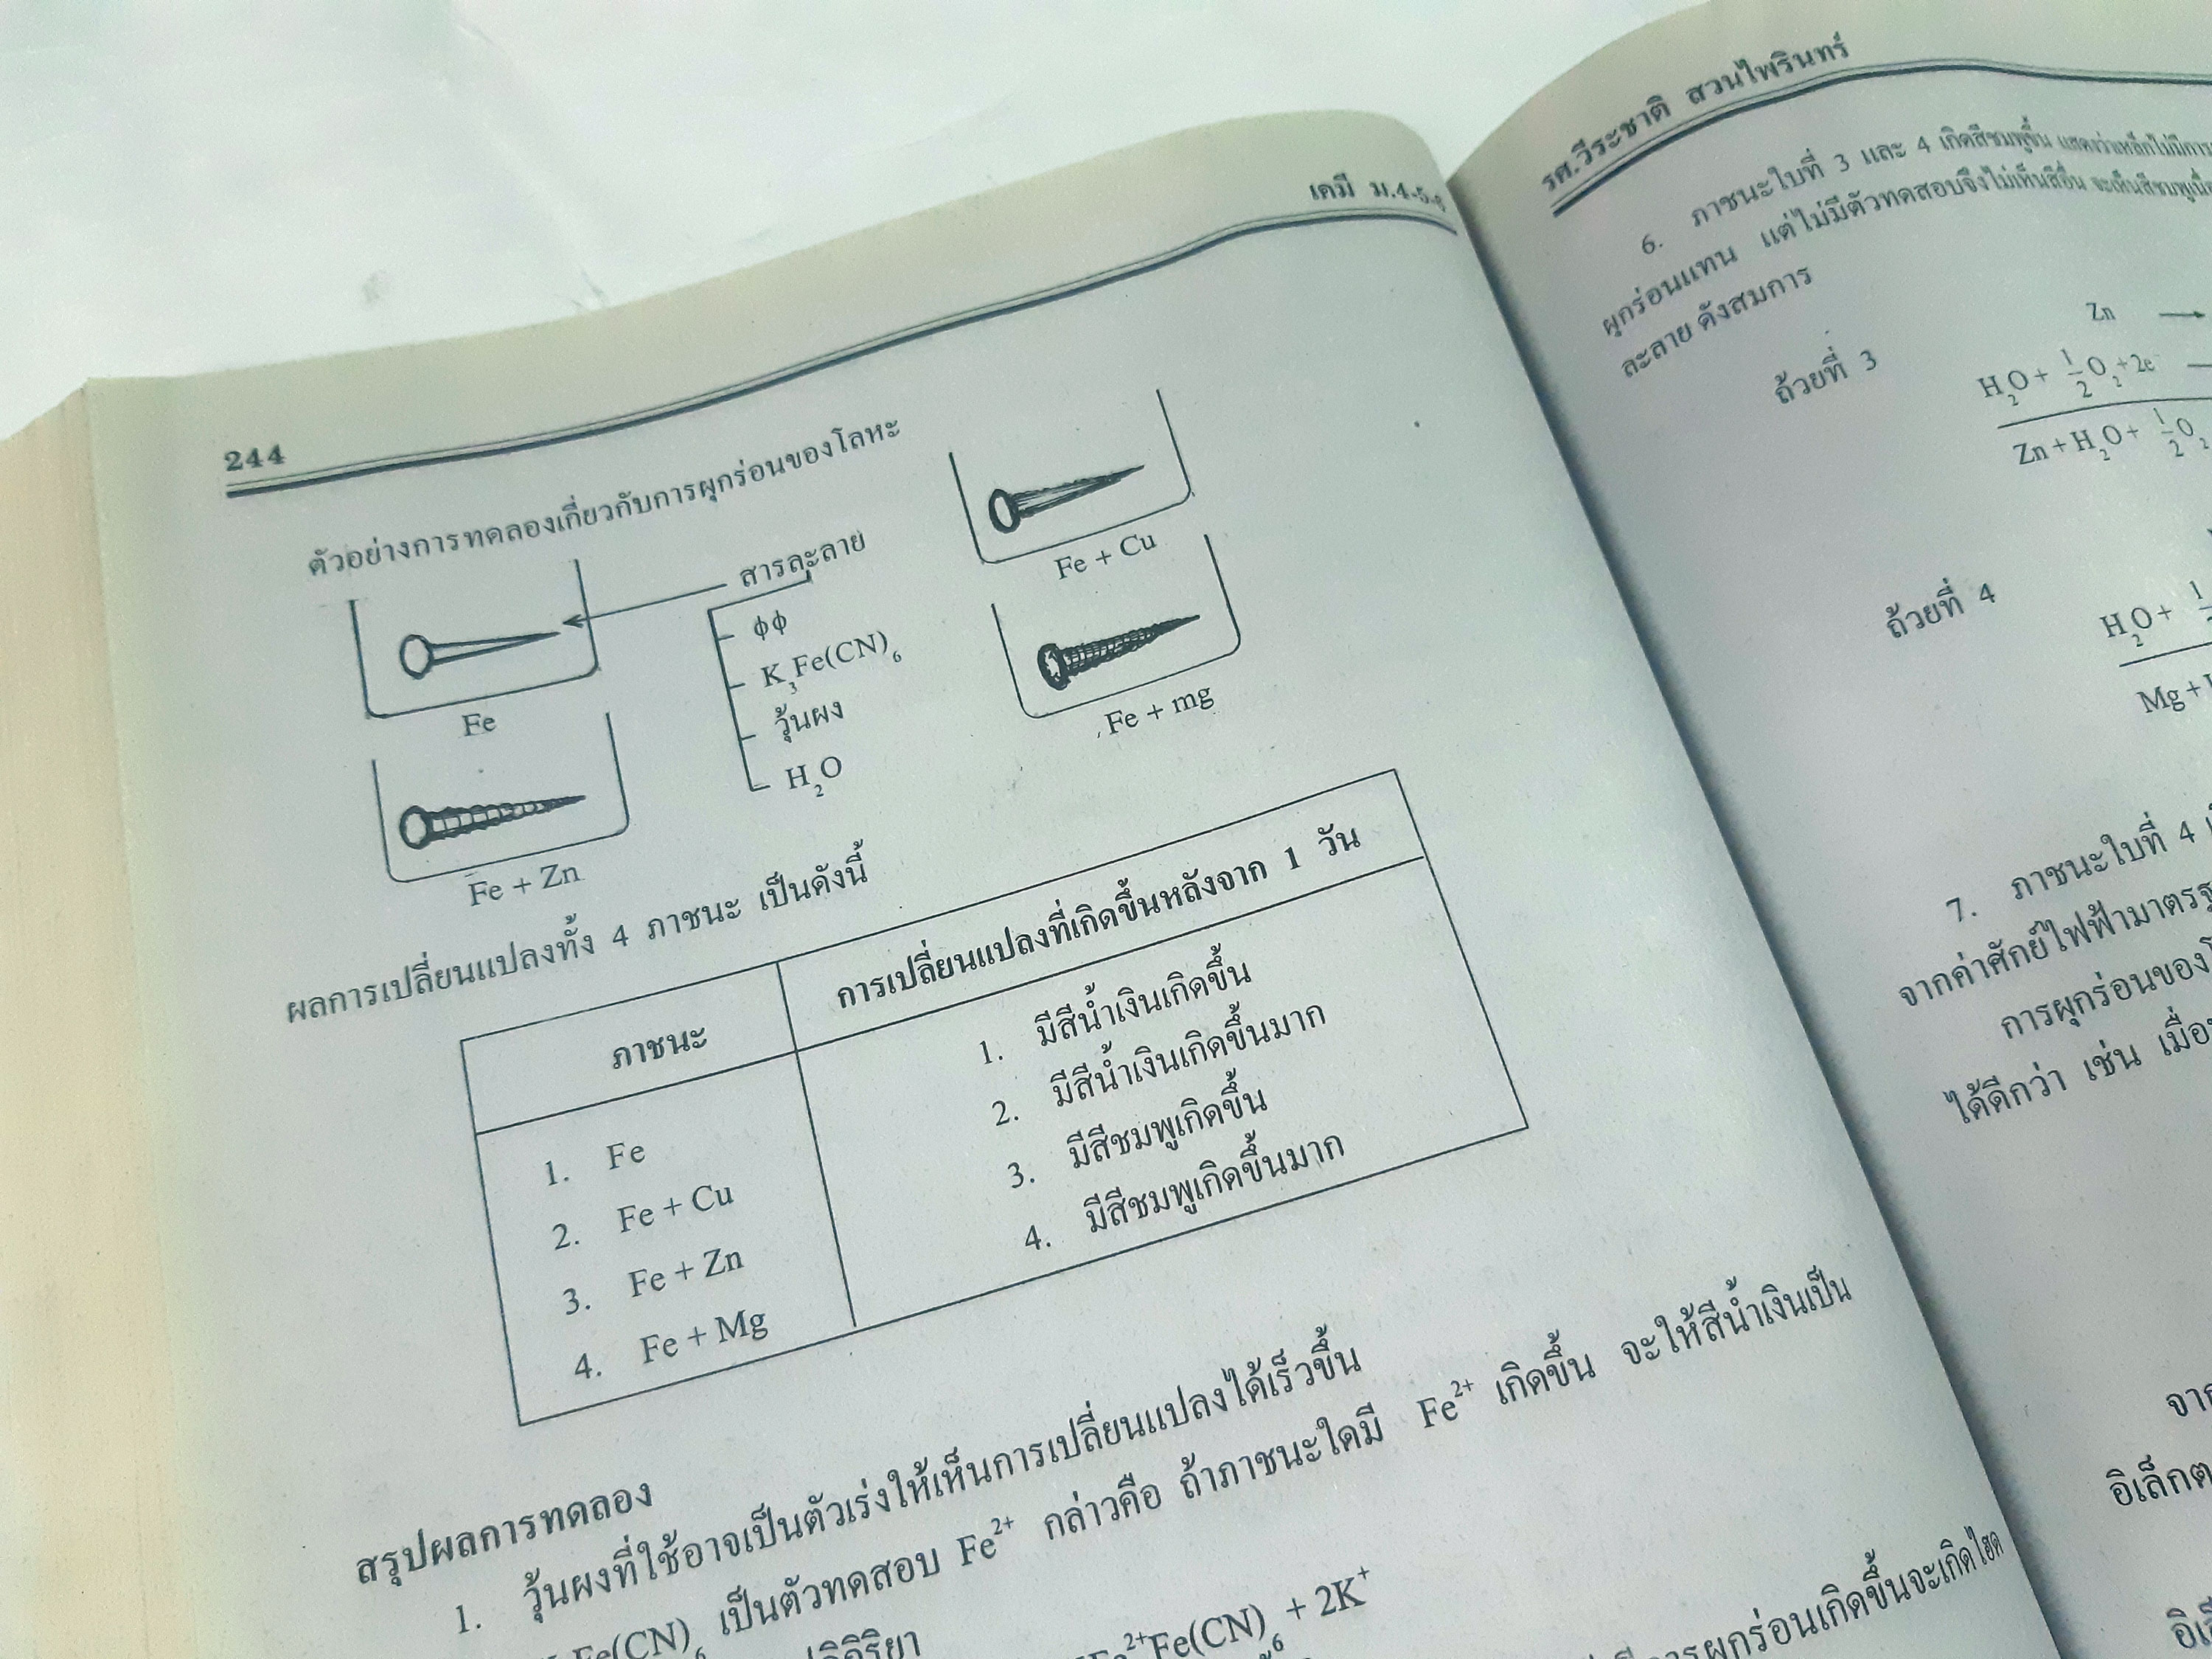 244
เคมี ม.4-5-6
ตัวอย่างการทดลองเกี่ยวกับการผุกร่อนของโลหะ
สารละลาย
ϕϕ
K₃Fe(CN)₆
วุ้นผง
H₂O
Fe
Fe + Cu
Fe + Zn
Fe + mg
ผลการเปลี่ยนแปลงทั้ง 4 ภาชนะ เป็นดังนี้
ภาชนะ การเปลี่ยนแปลงที่เกิดขึ้นหลังจาก 1 วัน
1. Fe 1. มีสีน้ำเงินเกิดขึ้น
2. Fe + Cu 2. มีสีน้ำเงินเกิดขึ้นมาก
3. Fe + Zn 3. มีสีชมพูเกิดขึ้น
4. Fe + Mg 4. มีสีชมพูเกิดขึ้นมาก
สรุปผลการทดลอง
1. วุ้นผงที่ใช้อาจเป็นตัวเร่งให้เห็นการเปลี่ยนแปลงได้เร็วขึ้น
Fe(CN)₆ เป็นตัวทดสอบ Fe²⁺ กล่าวคือ ถ้าภาชนะใดมี Fe²⁺ เกิดขึ้น จะให้สีน้ำเงินเป็น
Fe(CN)₆ + 2K⁺
การผุกร่อนเกิดขึ้นจะเกิดไฮด
รศ.วีระชาติ สวนไพรินทร์
6. ภาชนะใบที่ 3 และ 4 เกิดสีชมพูขึ้น แสดงว่าเหล็กไม่มีการ
ผุกร่อนแทน แต่ไม่มีตัวทดสอบจึงไม่เห็นสีอื่น จะเห็นสีชมพูเนื่อ
ละลาย ดังสมการ
ถ้วยที่ 3 Zn →
H₂O + ½O₂ + 2e⁻
Zn + H₂O + ½O₂
ถ้วยที่ 4
H₂O +
Mg +
7. ภาชนะใบที่ 4
จากค่าศักย์ไฟฟ้ามาตรฐ
การผุกร่อนของ
ได้ดีกว่า เช่น เมื่อ
จาก
อิเล็กต